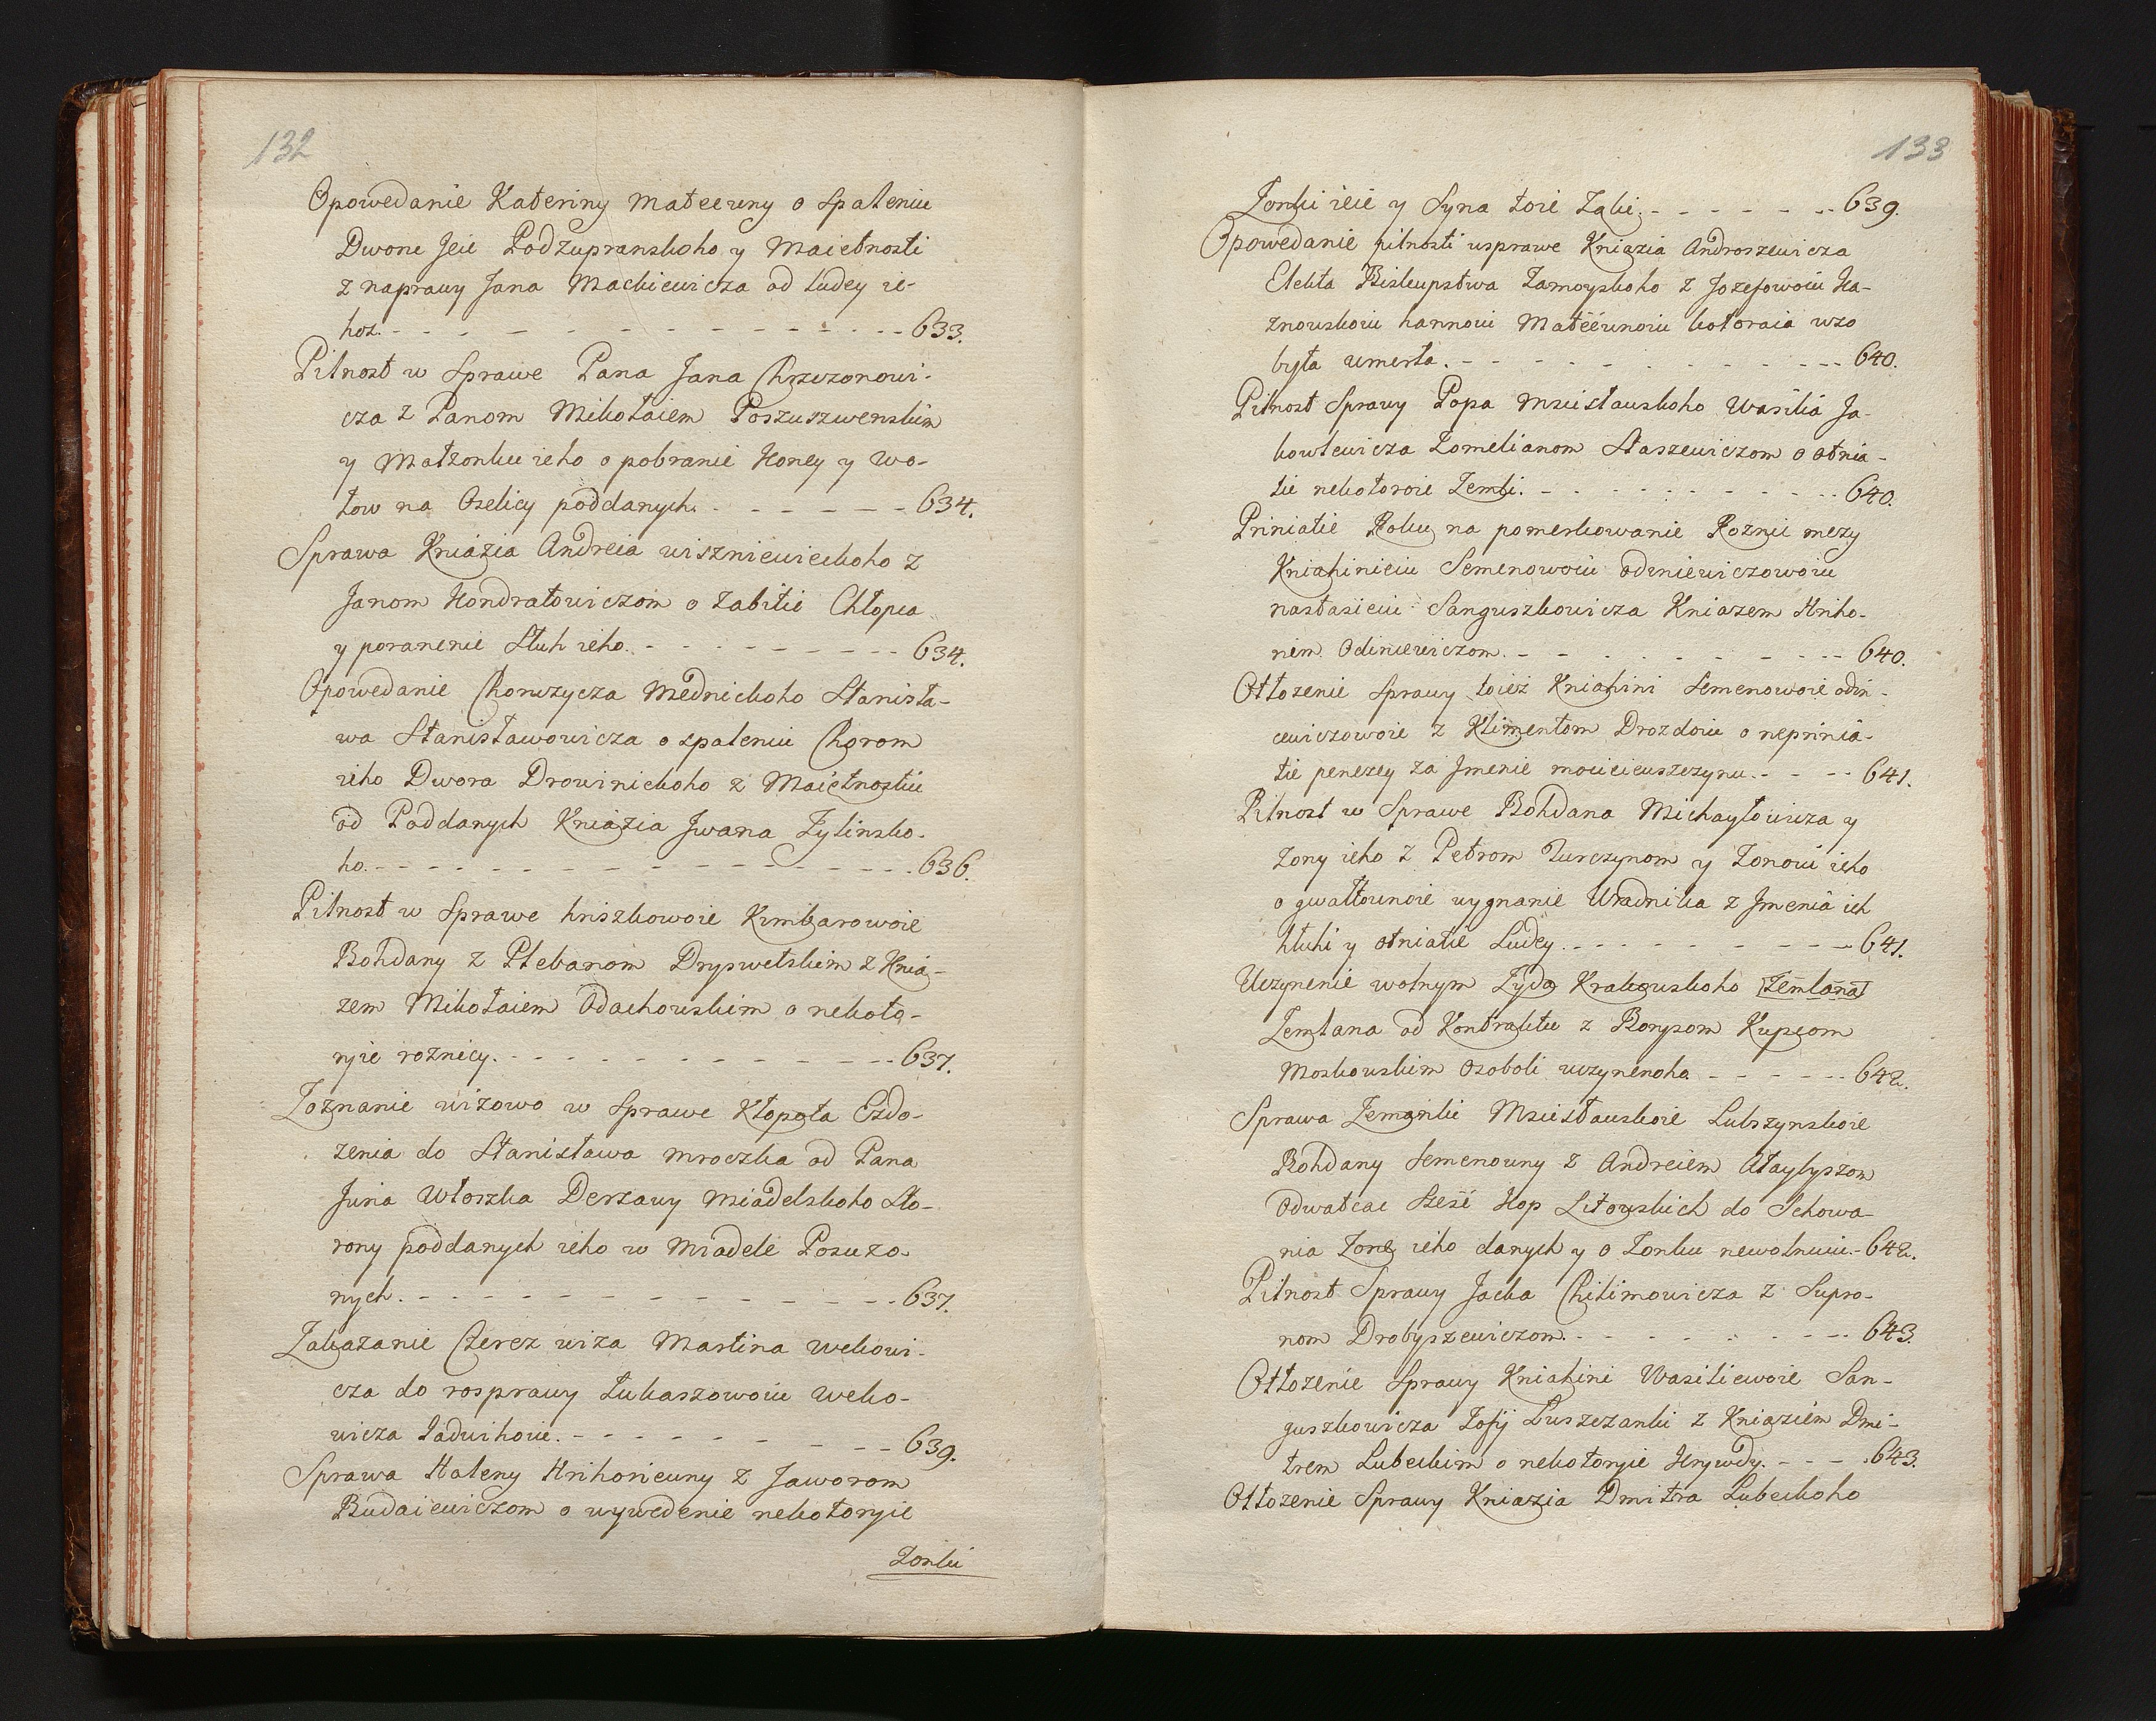 132
Opowedanie Kateriny Mateeuny o Spaleniu
Dwore Jeie Podzupranskoho y Maietnosti
z naprawy Jana Mackiewicza od Ludey ie-
hoz. - - - - - - - - - - - - 633.
Pilnost w Sprawe Pana Jana Chrzczonowi-
cza z Panom Mikołaiem Poszuszwenskim
y Małzonku ieho o pobranie Koney y Wo-
łow na Oselicy poddanych. - - - - - - 634.
Sprawa Kniazia Andreia wiszniewieckoho z
Janom Kondratowiczom o Zabitie Chłopca
y poranenie Słuh ieho. - - - - - - - - 634.
Opowedanie Choruzycza Mednickoho Stanisła-
wa Stanisławowicza o spaleniu Chorom
ieho Dwora Drowinickoho z Maietnostiu
od Poddanych Kniazia Jwana Zylinsko-
ho. - - - - - - - - - - - - - - - 636.
Pilnost w Sprawe hriszkowoie Kimbarowoie
Bohdany z Plebanom Dryswetskim z Knia-
zem Mikołaiem Odachowskim o nekoto-
ryie roznicy. - - - - - - - - - - - - 637.
Zoznanie wizowo w Sprawe Kłopota Ezdo-
zenia do Stanisława Mroczka od Pana
Juria Włoszka Derzawy Miadelskoho Sto-
rony poddanych ieho w Miadele Posuzo-
nych. - - - - - - - - - - - - - - 637.
Zakazanie Czerez wiza Martina Wekowi-
cza do rosprawy Łukaszowoiu Weko-
wicza Jadwihoiu. - - - - - - - - - 639.
Sprawa Haleny Hrihoriewny z Jaworom
Budaiewiczom o wywedenie nekotoryie
Zonki
133
Zonki ieie y Syna toie Zaki. - - - - - - 639.
Opowedanie pilnosti usprawe Kniazia Androszewicza
Elekta Biskupstwa Zamoyskoho z Jozefowoiu Ha-
znowskoiu hannoiu Mateeunoiu kotoraia uzo
była umerła. - - - - - - - - - - - 640.
Pilnost Sprawy Popa Msusławskoho Wasiliá Ja-
kowlewicza Zomelianom Staszewiczom o otnia-
tie nekotoroie Zemli. - - - - - - - - - 640.
Priniatie Roku na pomerkowanie Roznii mezy
Kniahinieiu Semenowoiu Odiniewiczowoiu
nastasieiu Sanguszkowicza Kniazem Hriho-
riem Odiniewiczom. - - - - - - - - - 640.
Otłozenie Sprawy toież Kniahini Semenowoie odin-
cewiczowoie z Klimentom Drozdoiu o neprinia-
tie penezey za Jmenie moiseiewszczynu. - - - - 641.
Pilnost w Sprawe Bohdana Michayłowicza y
Zony ieho z Petrom Turczynom y Zonoiu ieho
o gwałtownoie wygnanie Uradnika z Jmenia ich
hłuhi y otniatie Ludey. - - - - - - - - 641.
Uczynenie wolnym Zyda Krakowskoho Zemlana
Zemlana od Kontraktu z Borysom Kupcom
Moskowskim Osoboli uczynenoha - - - - - - 642.
Sprawa Zemanki Msusławskoie Lubszynskoie
Bohdany Semenowny z Andreiem Ałayłyszom
Odwatcac szesć Kop Litowskich do Schowa-
nia Zone ieho danych y o Zonku newolnuiu. - 642.
Pilnost Sprawy Jacka Chilimowicza z Supro-
nom Drobyszewiczom. - - - - - - - - - 643.
Otłozenie Sprawy Kniahini Wasiliewoie San-
guszkowicza Zofij Puszczanki z Kniaziem Dmi-
trem Lubeckim o nekotoryie Krywdy. - - - 643.
Otłozenie Sprawy Kniazia Dmitra Lubeckoho